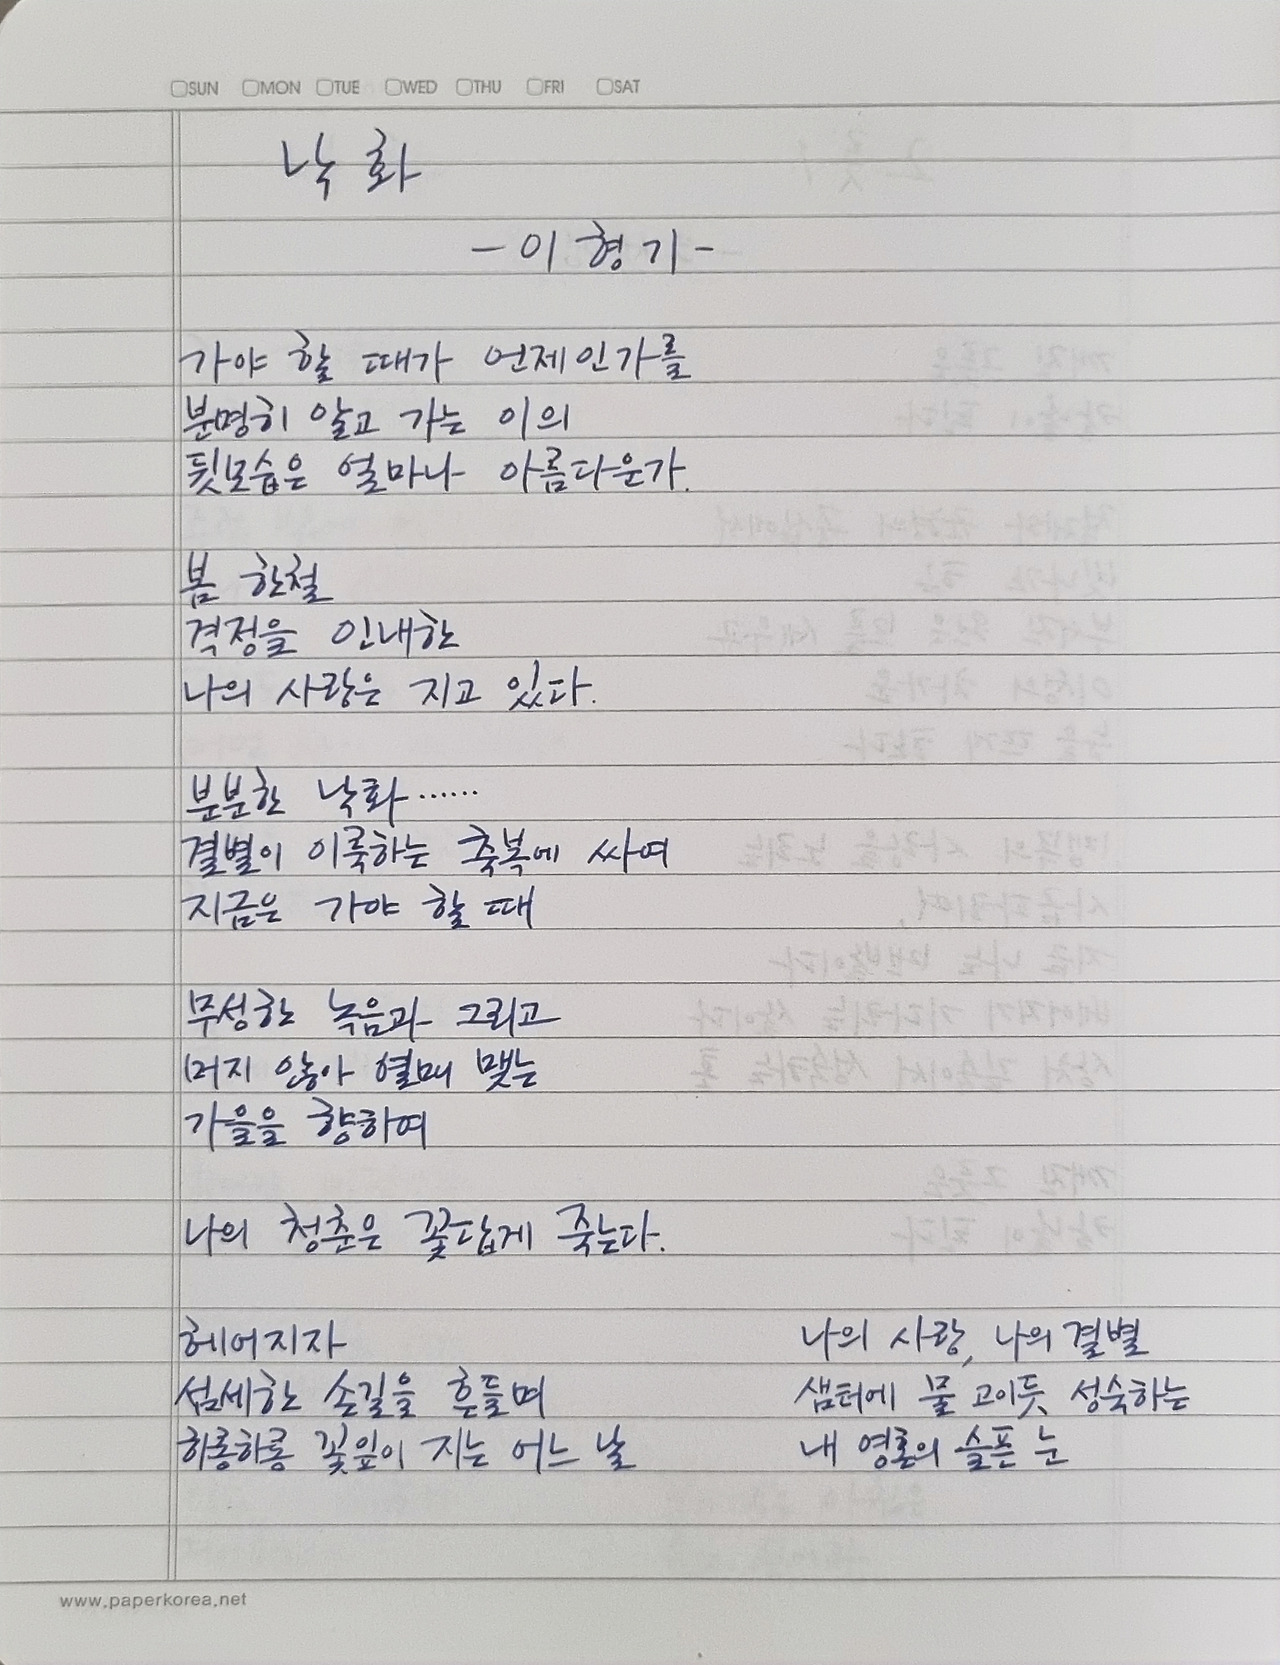 SUN MON TUE WED THU FRI SAT
낙화
- 이형기 -
가야 할 때가 언제인가를
분명히 알고 가는 이의
뒷모습은 얼마나 아름다운가.
봄 한철
격정을 인내한
나의 사랑은 지고 있다.
분분한 낙화······
결별이 이룩하는 축복에 싸여
지금은 가야 할 때
무성한 녹음과 그리고
머지 않아 열매 맺는
가을을 향하여
나의 청춘은 꽃답게 죽는다.
헤어지자
섬세한 손길을 흔들며
하롱하롱 꽃잎이 지는 어느 날
나의 사랑, 나의 결별
샘터에 물 고이듯 성숙하는
내 영혼의 슬픈 눈
www.paperkorea.net